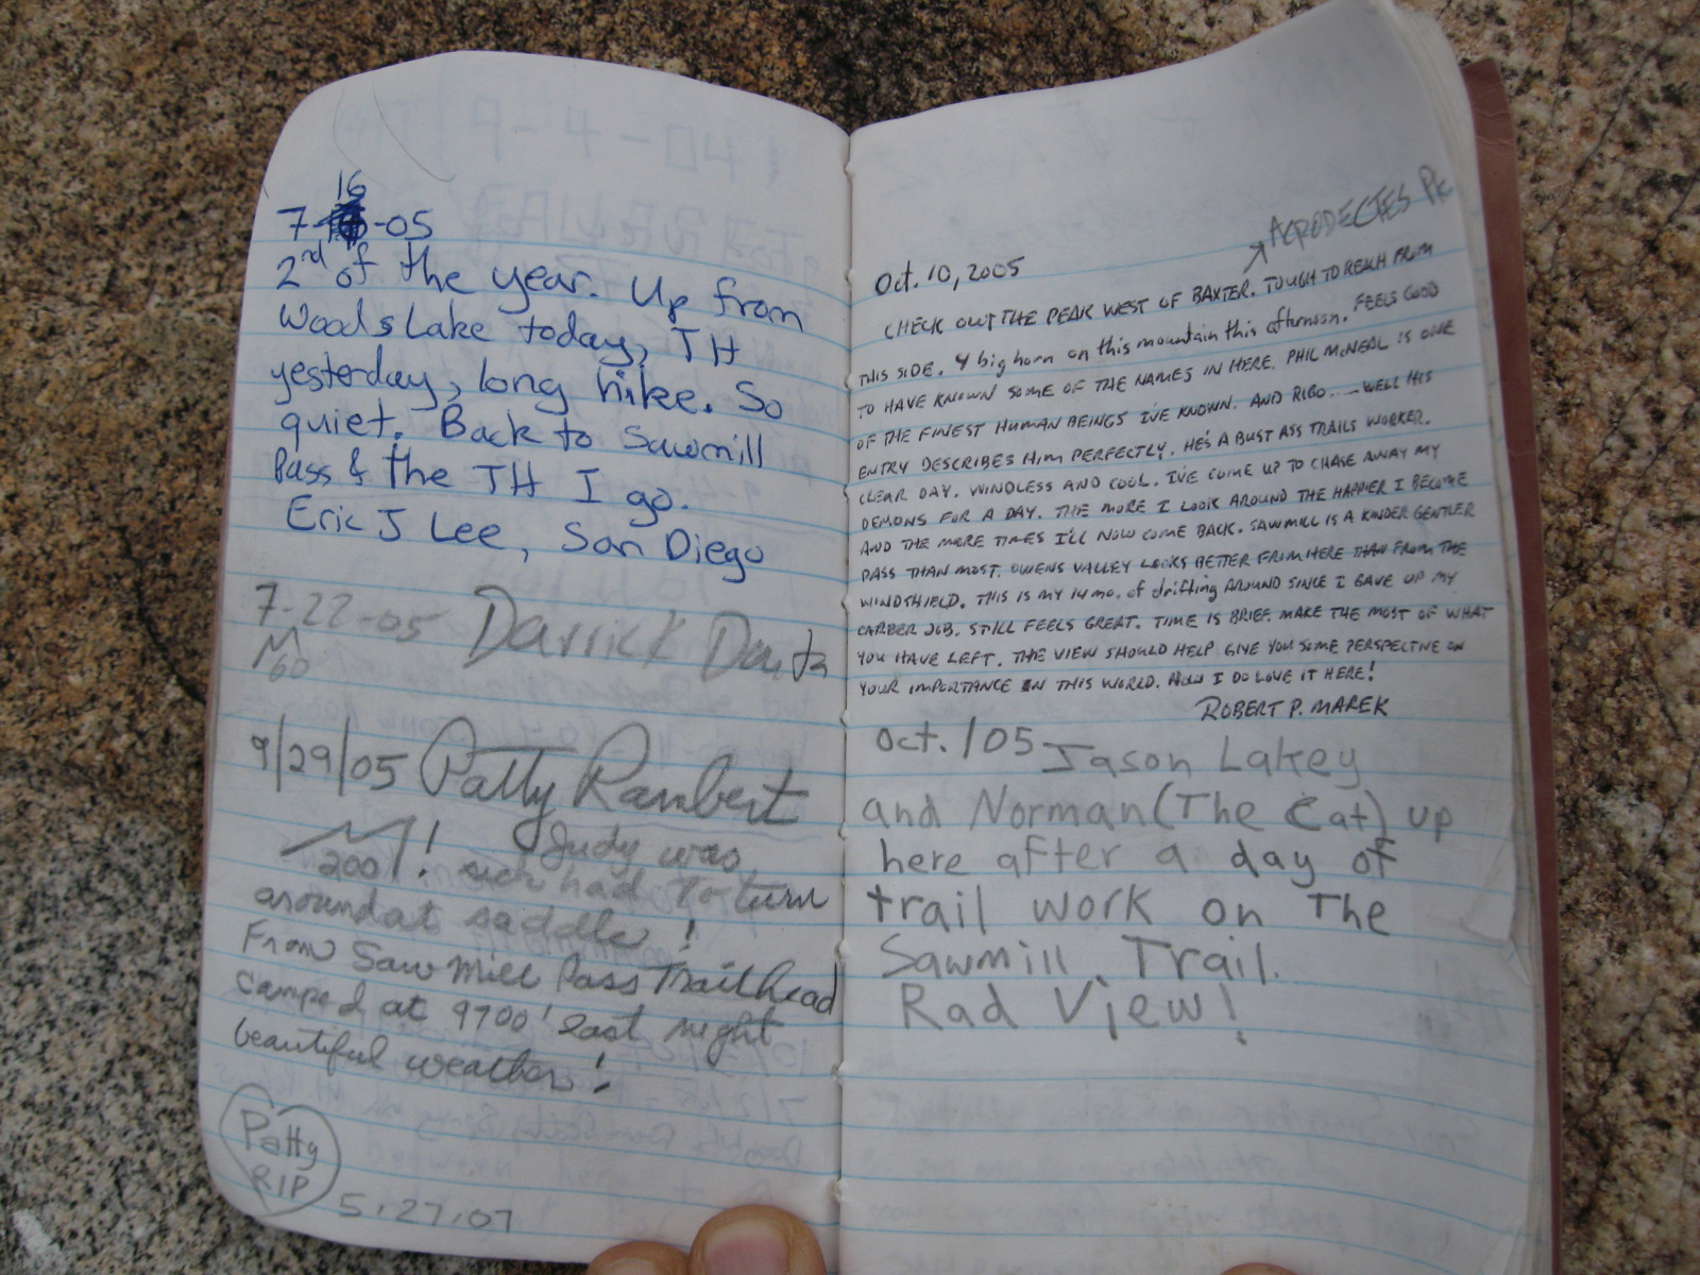 16
7-16-05
2nd of the year. Up from
Woods Lake today, TH
yesterday, long hike. So
quiet. Back to Sawmill
Pass & the TH I go.
Eric J Lee, San Diego
7-22-05 Darrick
60
9/29/05 Patty Rambert
200! Judy was
sick had to turn
around at saddle!
From Saw Mill Pass Trailhead
camped at 9700' last night
beautiful weather!
Patty
RIP
5.27.07
ACRODECTES PK
Oct. 10, 2005
CHECK OUT THE PEAK WEST OF BAXTER. TOUGH TO REACH FROM
THIS SIDE. 4 big horn on this mountain this afternoon. FEELS GOOD
TO HAVE KNOWN SOME OF THE NAMES IN HERE. PHIL MCNEAL IS ONE
OF THE FINEST HUMAN BEINGS I'VE KNOWN. AND RIBO..... WELL HIS
ENTRY DESCRIBES HIM PERFECTLY. HE'S A BUST ASS TRAILS WORKER.
CLEAR DAY. WINDLESS AND COOL. I'VE COME UP TO CHASE AWAY MY
DEMONS FOR A DAY. THE MORE I LOOK AROUND THE HAPPIER I BECOME
AND THE MORE TIMES I'LL NOW COME BACK. SAWMILL IS A KINDER GENTLER
PASS THAN MOST. OWENS VALLEY LOOKS BETTER FROM HERE THAN FROM THE
WINDSHIELD. THIS IS MY 14 mo. of drifting AROUND SINCE I GAVE UP MY
CAREER JOB. STILL FEELS GREAT. TIME IS BRIEF. MAKE THE MOST OF WHAT
YOU HAVE LEFT. THE VIEW SHOULD HELP GIVE YOU SOME PERSPECTIVE ON
YOUR IMPORTANCE IN THIS WORLD. I DO LOVE IT HERE!
ROBERT P. MAREK
Oct. /05 Jason Lakey
and Norman (The Cat) up
here after a day of
trail work on The
Sawmill Trail.
Rad View!